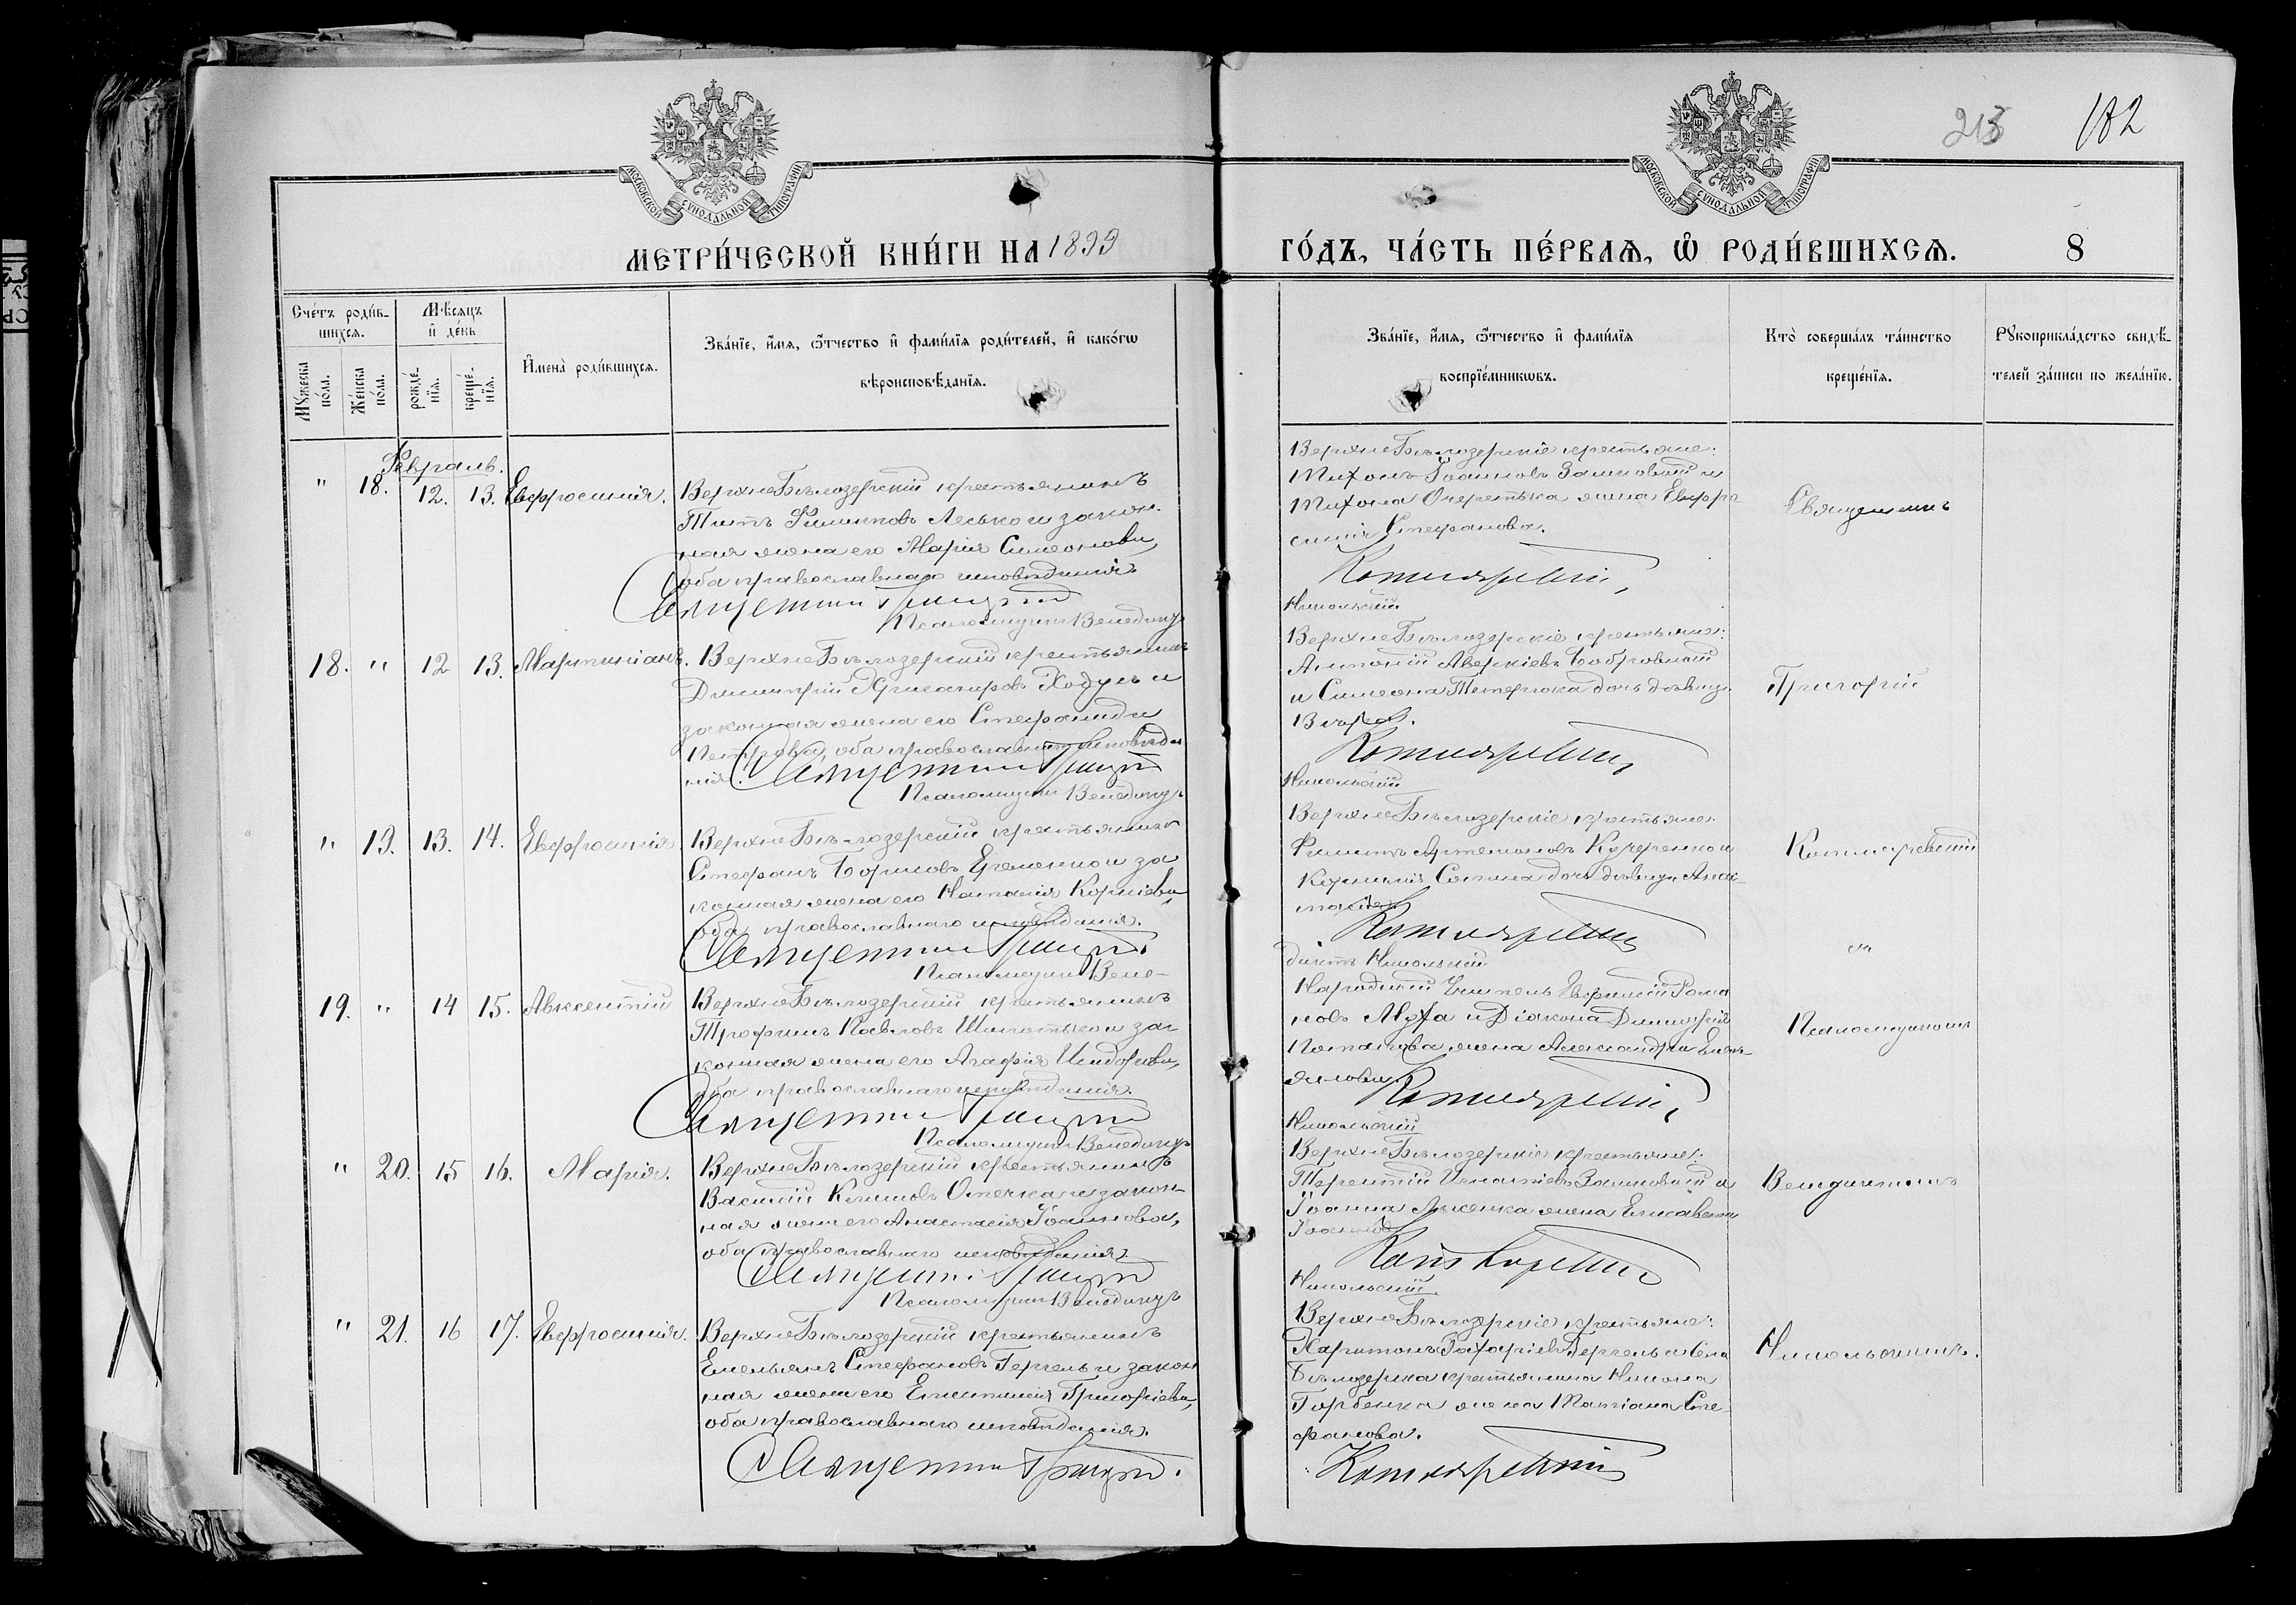 МОСКОВСКОЙ СѴНОДАЛЬНОЙ ТИПОГРАФІИ
МОСКОВСКОЙ СѴНОДАЛЬНОЙ ТИПОГРАФІИ
213
182
МЕТРИ́ЧЕСКОЙ КНИ́ГИ НА 1899
ГО́ДЪ, ЧА́СТЬ ПЕ́РВАѦ, Ѡ҆ РОДИ́ВШИХСѦ.
8
Сче́тъ роди́в-
шихсѧ.
Мꙋ́жеска
по́ла.
Же́нска
по́ла.
Мѣ́сѧцъ
и҆ де́нь
рожде́-
нїѧ.
креще́-
нїѧ.
И҆мена̀ роди́вшихсѧ.
Зва́нїе, и҆́мѧ, ѻ҆́тчество и҆ фами́лїѧ роди́телей, и҆ како́гѡ
вѣроисповѣ́данїѧ.
Зва́нїе, и҆́мѧ, ѻ҆́тчество и҆ фами́лїѧ
воспрїе́мникѡвъ.
Кто̀ соверша́лъ та́инство
креще́нїѧ.
Рꙋкоприкла́дство свидѣ́-
телей за́писи по жела́нїю.
Февраль.
" 18. 12. 13. Евфросинія. ВерхнеБѣлозерскій крестьянинъ
Титъ Филиповъ Лесько и закон-
ная жена его Марія Симеонова,
оба православнаго исповѣданія
Священникъ Григорій
Псаломщикъ Венедиктъ
ВерхнеБѣлозерскіе крестьяне:
Тихонъ Іоанновъ и
Тихона жена Евфро-
синія Стефанова.
Котляревскій,
Никольскій
Священникъ
18. " 12 13. Мартиніанъ. ВерхнеБѣлозерскій крестьянинъ
Димитрій Ходусъ и
законная жена его Стефанида
Петрова, оба православнаго исповѣда-
нія. Священникъ Григорій
Псаломщикъ Венедиктъ
ВерхнеБѣлозерскіе крестьяне:
Антоній Аверкіевъ Бобровскій
и Симеона Тетерюка дочь дѣвица
Котляревскій,
Никольскій
Григорій
" 19. 13. 14. Евфросинія ВерхнеБѣлозерскій крестьянинъ
Стефанъ Борисовъ Еременко и за-
конная жена его Наталія Корніева,
оба православнаго исповѣданія.
Священникъ Григорій.
Псаломщикъ Вене-
ВерхнеБѣлозерскіе крестьяне:
Филиппъ Артемоновъ Кучеренко и
дочь дѣвица Анас-
тасія.
Котляревскій
диктъ Никольскій
Котляревскій
"
19. " 14 15. Авксентій ВерхнеБѣлозерскій крестьянинъ
Трофимъ Павловъ и за-
конная жена его Агафія Исидорова,
оба православнаго исповѣданія.
Священникъ Григорій
Псаломщикъ Венедиктъ
Народный Учитель Рома-
новъ и Діакона Димитрія
Потапова жена Александра Емель-
янова.
Котляревскій,
Никольскій
Псаломщикомъ
" 20. 15 16. Марія. ВерхнеБѣлозерскій крестьянинъ
Василій и закон-
ная жена его Анастасія Іоаннова,
оба православнаго исповѣданія
Священникъ Григорій
Псаломщикъ Венедиктъ
ВерхнеБѣлозерскіе крестьяне:
Терентій Игнатіевъ и
Іоанна жена Елисавета
Котляревскій
Никольскій.
Венедиктомъ
" 21. 16 17. Евфросинія. ВерхнеБѣлозерскій крестьянинъ
Емельянъ Стефановъ Гергель и закон-
ная жена его Григоріева,
оба православнаго исповѣданія.
Священникъ Григорій.
ВерхнеБѣлозерскіе крестьяне:
Харитонъ Гергель и села
Бѣлозерка крестьянина Никона
Горбенка жена Татіана Сте-
фанова.
Котляревскій
Никольскимъ.